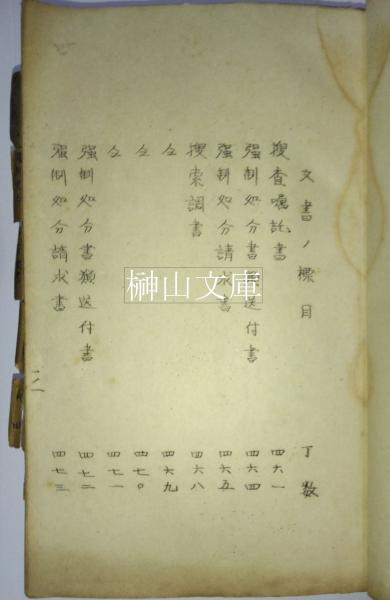 文書ノ標目 丁数
捜査嘱託書 四六一
強制処分書 送付書 四六四
強制処分請求書 四六五
捜索調書 四六八
仝 四六九
仝 四七〇
仝 四七一
強制処分書類送付書 四七二
強制処分請求書 四七三
榊山文庫